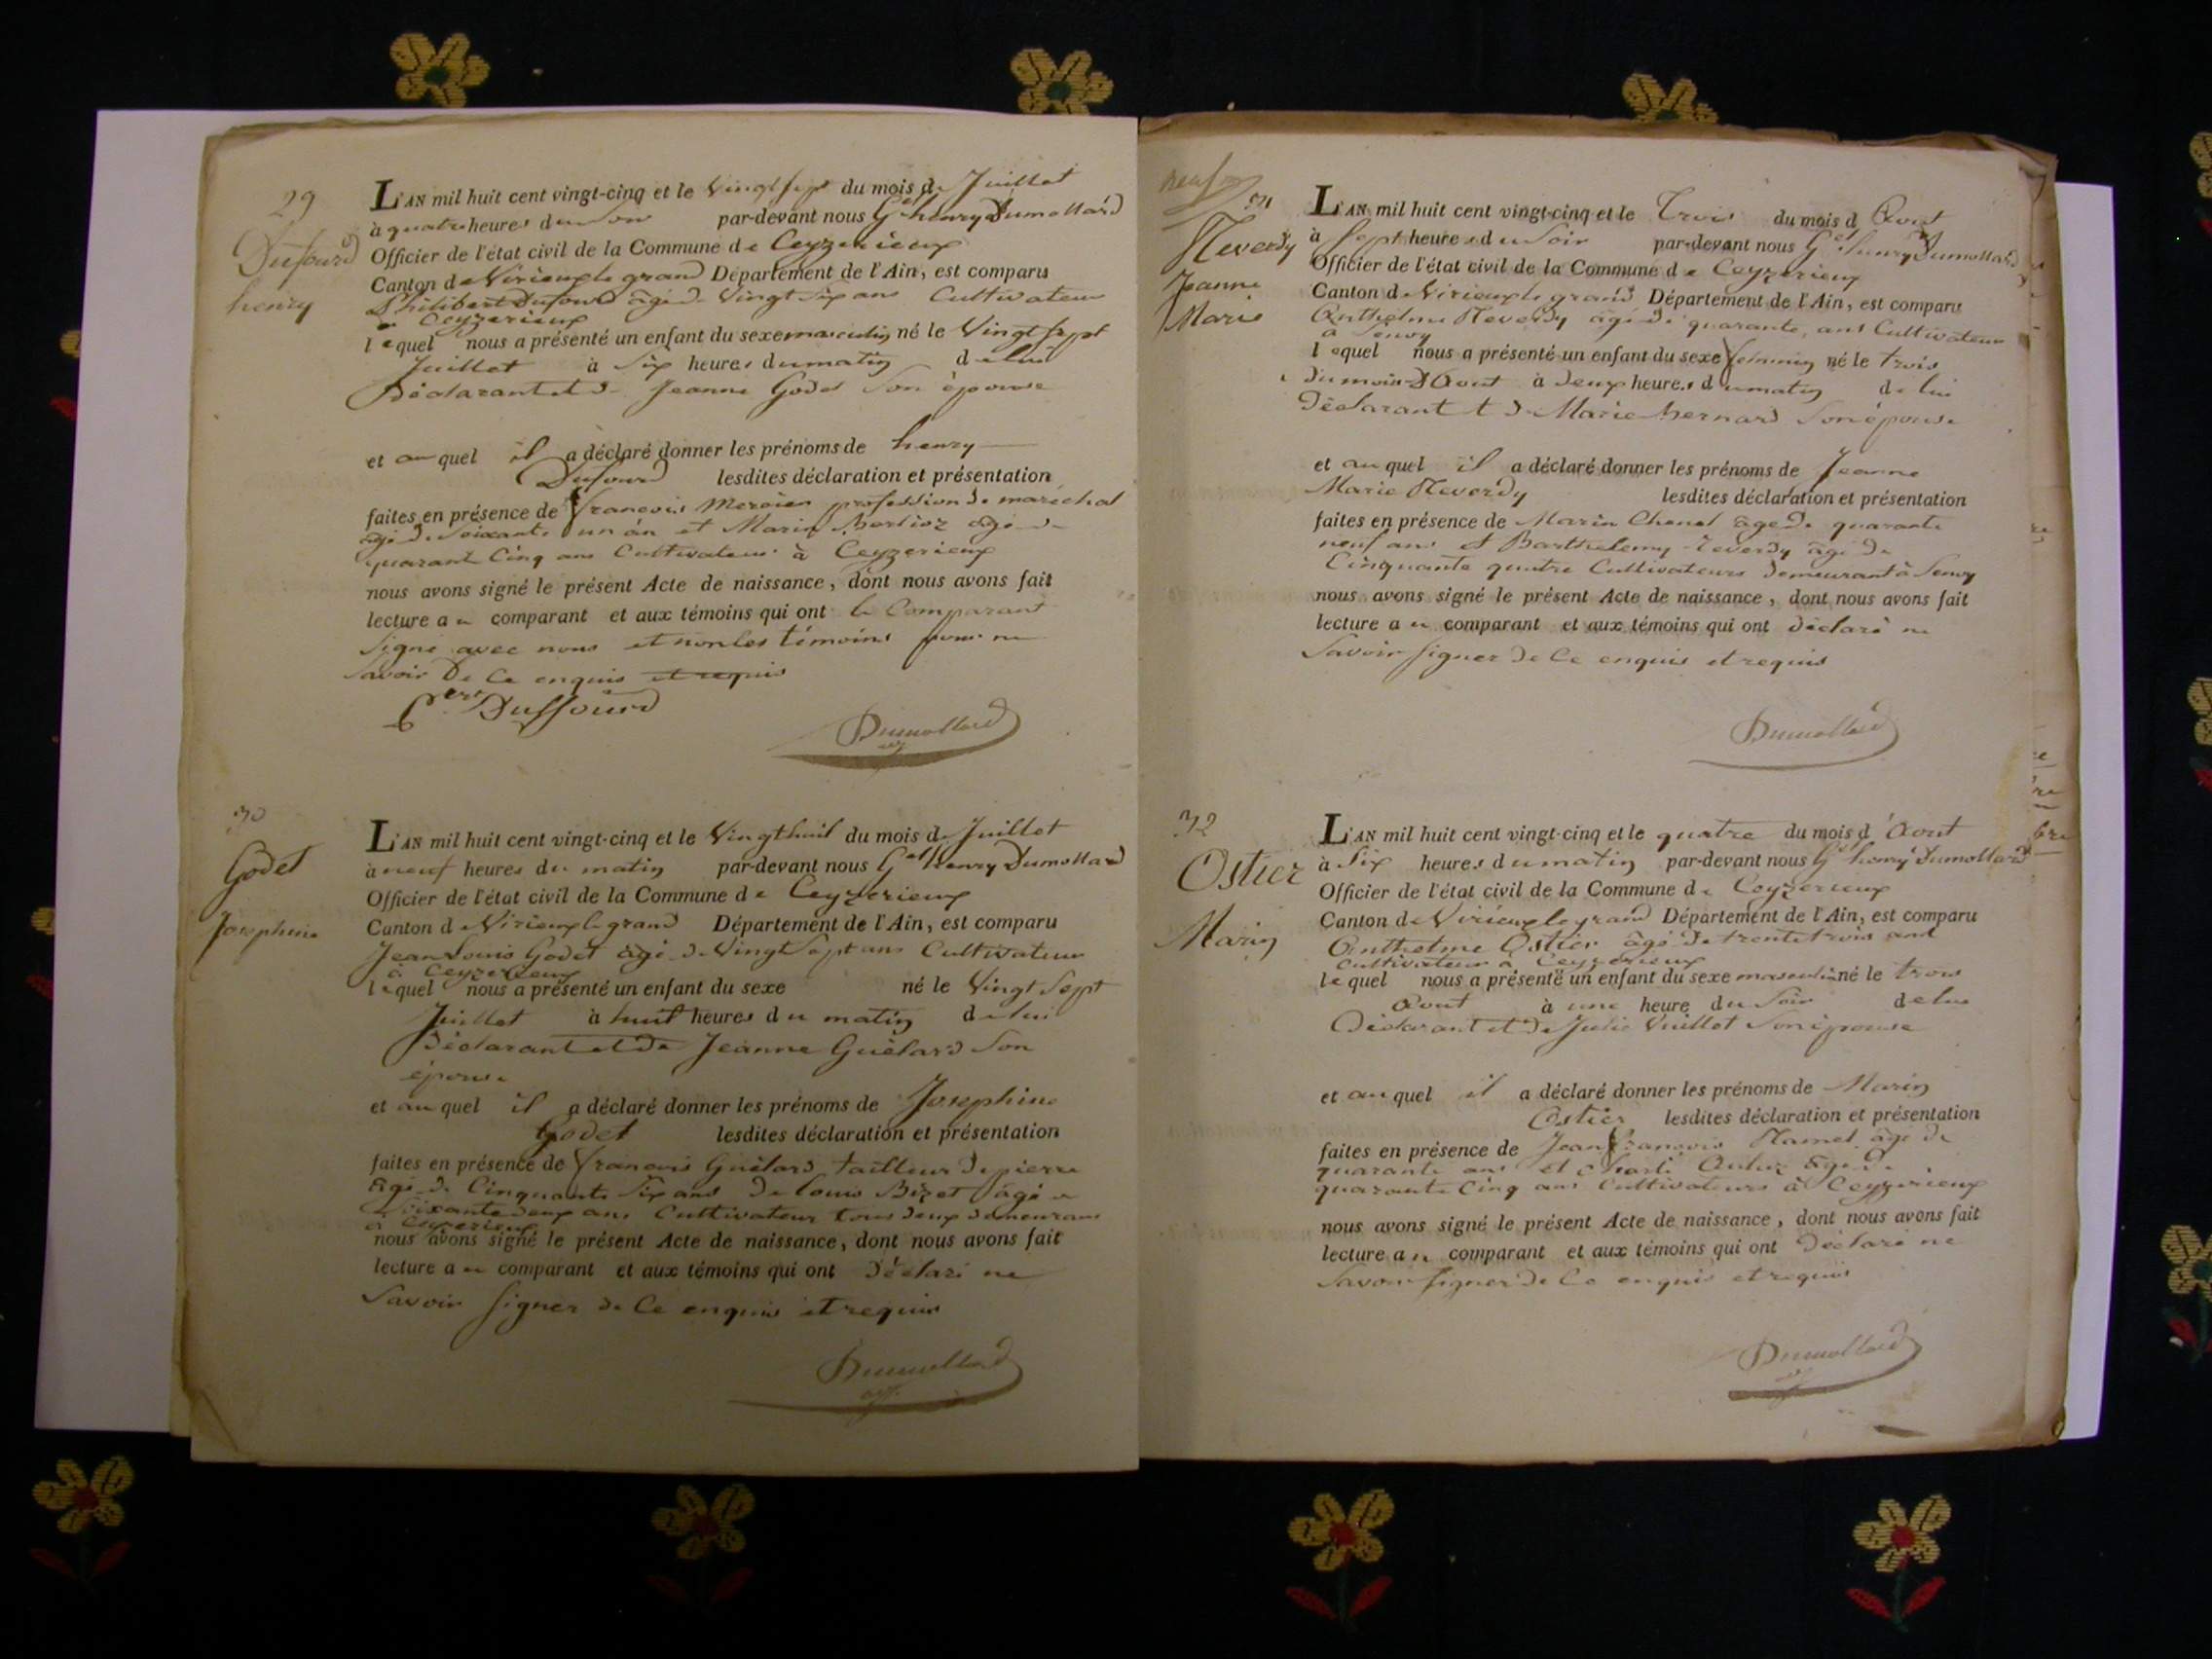 29
Dufourd
henry
L'AN mil huit cent vingt-cinq et le Vingt sept du mois de Juillet
à quatre heures du Soir par-devant nous Gel henry Dumollard
Officier de l'état civil de la Commune de Ceyzerieux
Canton de Virieux le grand Département de l'Ain, est comparu
Philibert Dufourd âgé de Vingt Six ans Cultivateur
à Ceyzerieux
lequel nous a présenté un enfant du sexe masculin né le Vingt Sept
Juillet à Six heures du matin de lui
Déclarant et de Jeanne Godet Son épouse
et au quel il a déclaré donner les prénoms de henry
Dufourd lesdites déclaration et présentation
faites en présence de francois Mercier profession de maréchal
âgé de Soixante un án et Marin Berlioz âgé de
quarant Cinq ans Cultivateur à Ceyzerieux
nous avons signé le présent Acte de naissance, dont nous avons fait
lecture au comparant et aux témoins qui ont le Comparant
Signé avec nous et non les témoins pour ne
Savoir De Ce enquis et requis
Dufsourd
Dumollard
30
Godet
Josephine
L'AN mil huit cent vingt-cinq et le Vingt huit du mois de Juillet
à neuf heures du matin par-devant nous Gel henry Dumollard
Officier de l'état civil de la Commune de Ceyzerieux
Canton de Virieux le grand Département de l'Ain, est comparu
Jean Louis Godet âgé de Vingt Sept ans Cultivateur
à Ceyzerieux
lequel nous a présenté un enfant du sexe né le Vingt Sept
Juillet à huit heures du matin de lui
Déclarant et de Jeanne Guélard Son
épouse
et au quel il a déclaré donner les prénoms de Josephine
Godet lesdites déclaration et présentation
faites en présence de francois Guélard tailleur de pierre
âgé de Cinquante Six ans de louis Bizet âgé de
Soixante deux ans Cultivateur tous deux demeurans
à Ceyzerieux
nous avons signé le présent Acte de naissance, dont nous avons fait
lecture au comparant et aux témoins qui ont Déclaré ne
Savoir Signer de Ce enquis et requis
Dumollard
31
Reverdy
Jeanne
Marie
L'AN mil huit cent vingt-cinq et le Trois du mois d Aout
à Sept heures du Soir par-devant nous Gel henry Dumollard
Officier de l'état civil de la Commune de Ceyzerieux
Canton de Virieux le grand Département de l'Ain, est comparu
Anthelme Reverdy âgé de quarante ans Cultivateur
à
lequel nous a présenté un enfant du sexe feminin né le trois
Du mois D'Aout à deux heures du matin de lui
Déclarant et de Marie bernard Son épouse
et au quel il a déclaré donner les prénoms de Jeanne
Marie Reverdy lesdites déclaration et présentation
faites en présence de Marin Chenel âgé de quarante
neuf ans et Barthelemy Reverdy âgé de
Cinquante quatre Cultivateurs demeurant à
nous avons signé le présent Acte de naissance, dont nous avons fait
lecture au comparant et aux témoins qui ont déclaré ne
Savoir signer de Ce enquis et requis
Dumollard
32
Ostier
Marin
L'AN mil huit cent vingt-cinq et le quatre du mois d'Aout
à Six heures du matin par-devant nous Gel henry Dumollard
Officier de l'état civil de la Commune de Ceyzerieux
Canton de Virieux le grand Département de l'Ain, est comparu
Anthelme Ostier âgé de trente trois ans
Cultivateur à Ceyzerieux
lequel nous a présenté un enfant du sexe masculin né le trois
Aout à une heure du Soir de lui
Déclarant et de Julie Vuillot Son épouse
et au quel il a déclaré donner les prénoms de Marin
Ostier lesdites déclaration et présentation
faites en présence de Jean francois Ramel âgé de
quarante ans et âgé de
quarante Cinq ans Cultivateurs à Ceyzerieux
nous avons signé le présent Acte de naissance, dont nous avons fait
lecture au comparant et aux témoins qui ont Déclaré ne
Savoir signer de Ce enquis et requis
Dumollard